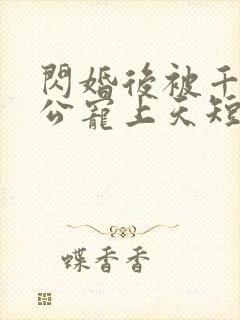 閃婚後被千
公寵上天短
蝶香香